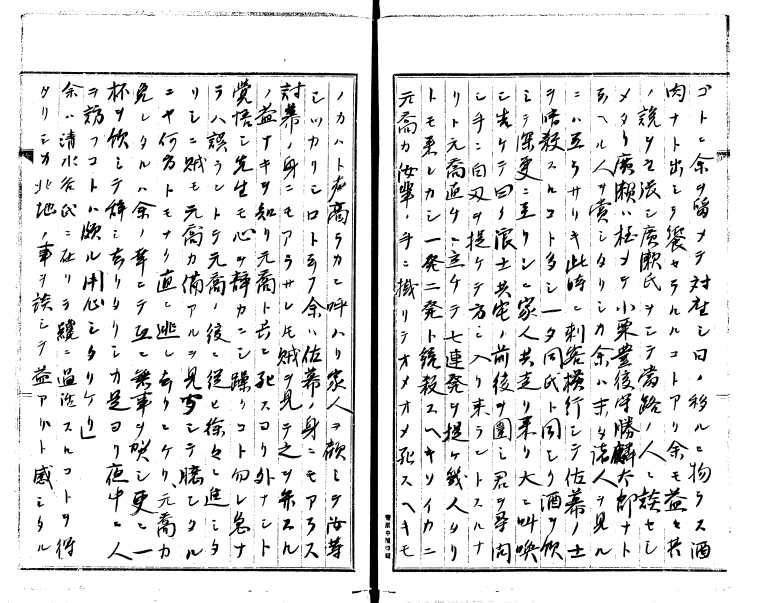 ゴトニ余ヲ留メテ対座シ日ノ移ルヲ物ラス酒
肉ナト出シテ饗セラルルコトアリ余モ益其
ノ説ヲ主張シ広瀬氏ヲシテ当路ノ人ト談セシ
メタリ広瀬ハ極メテ小栗豊後守勝麟太郎ナト
云ヘル人ヲ賞シタリシカ余ハ未タ諸人ヲ見ル
ニハ至ラサリキ此時ニ刺客横行シテ佐幕ノ士
ヲ暗殺スルコト多シ一夕同氏ト同シク酒ヲ飲
ミテ深更ニ至リシニ家人共走リ来リ大ニ叫喚
シ告ケテ曰ク浪士共宅ノ前後ヲ囲ミ君ヲ尋問
シ手ニ白刃ヲ提ケテ方ニ入リ来ラントスルナ
リト元喬直ケニ立ケテ七連発ヲ提ケ幾人タリ
トモ来レカシ一発二発ト銃殺スヘキソイカニ
元喬カ汝輩ノ手ニ掛リテオメオメ死スヘキモ
ノカハト声高ラカニ呼ハリ家人ヲ顧ミテ汝等
シツカリシロト云フ余ハ佐幕ノ身ニモアラス
討幕ノ身ニモアラサレトモ賊ヲ見テ之ヲ奔スル
ノ益ナキヲ知リ元喬ト共ニ死スヨリ外ナシト
覚悟シ先生モ心ヲ静カニシ躁クコト勿レ急ナ
ラハ誤ラントテ元喬ノ後ニ従ヒ徐々ニ進ミタ
リシニ賊モ元喬カ備アルヲ見
ニヤ何方トモナク直ニ逃レ去リケリ元喬カ
免レタルハ余ノ幸ニテ互ニ無事ヲ賀シ更ニ一
杯ヲ飲ミテ辞シ去リタリシカ是ヨリ夜中ニ人
ヲ訪フコトハ頗ル用心シタリケリ
余ハ清水谷氏ニ在リテ纔ニ温習スルコトヲ得
タリシカ北地ノ事ヲ談シテ益アリト感シタル